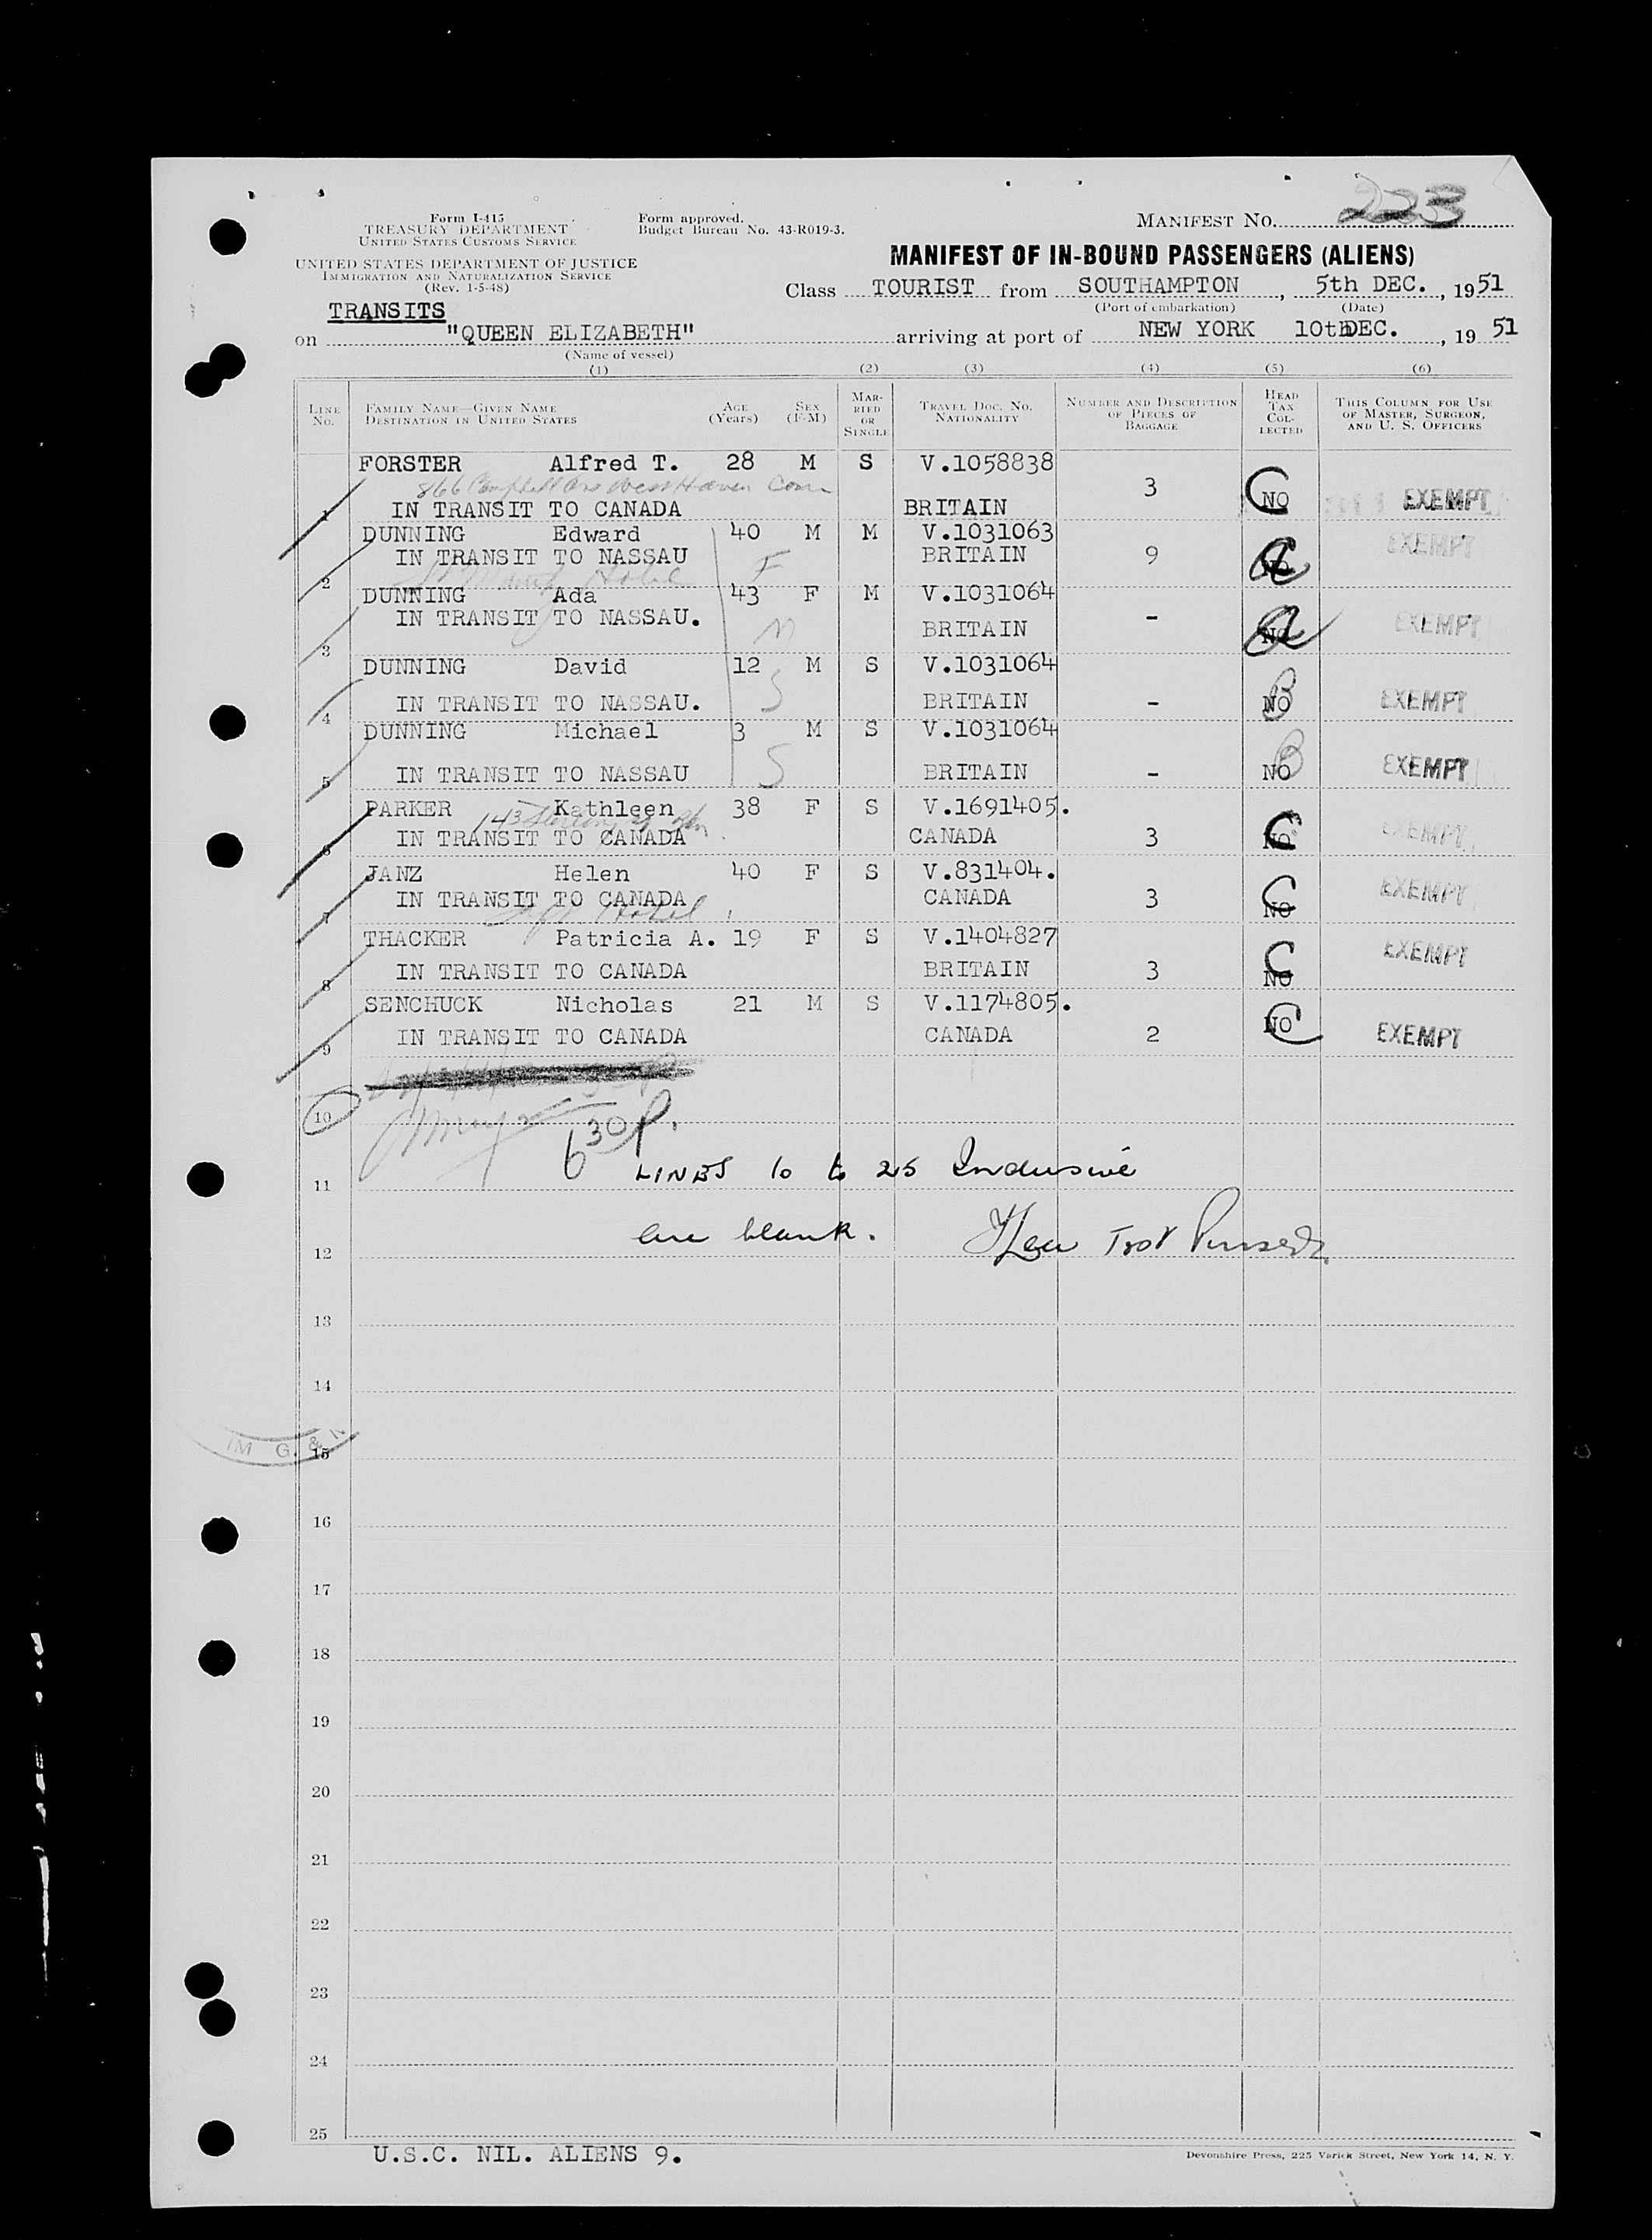 Form I-415
TREASURY DEPARTMENT
UNITED STATES CUSTOMS SERVICE
UNITED STATES DEPARTMENT OF JUSTICE
IMMIGRATION AND NATURALIZATION SERVICE
(Rev. 1-5-48)
Form approved.
Budget Bureau No. 43-R019-3.
MANIFEST NO. 223
MANIFEST OF IN-BOUND PASSENGERS (ALIENS)
Class TOURIST from SOUTHAMPTON, 5th DEC., 1951
(Port of embarkation) (Date)
TRANSITS
on "QUEEN ELIZABETH" arriving at port of NEW YORK 10th DEC., 19 51
(Name of vessel)
(1) (2) (3) (4) (5) (6)
LINE No. FAMILY NAME—GIVEN NAME DESTINATION IN UNITED STATES AGE (Years) SEX (F-M) MARRIED OR SINGLE TRAVEL DOC. NO. NATIONALITY NUMBER AND DESCRIPTION OF PIECES OF BAGGAGE HEAD TAX COLLECTED THIS COLUMN FOR USE OF MASTER, SURGEON, AND U. S. OFFICERS
FORSTER Alfred T. 28 M S V.1058838
866 Campbell Ave West Haven Conn
1 IN TRANSIT TO CANADA BRITAIN 3 NO C EXEMPT
DUNNING Edward 40 M M V.1031063
2 IN TRANSIT TO NASSAU F BRITAIN 9 NO EXEMPT
Hotel
DUNNING Ada 43 F M V.1031064
3 IN TRANSIT TO NASSAU. M BRITAIN - NO EXEMPT
DUNNING David 12 M S V.1031064
4 IN TRANSIT TO NASSAU. S BRITAIN - NO B EXEMPT
DUNNING Michael 3 M S V.1031064
5 IN TRANSIT TO NASSAU S BRITAIN - NO B EXEMPT
PARKER Kathleen 38 F S V.1691405.
143
6 IN TRANSIT TO CANADA CANADA 3 NO C EXEMPT
JANZ Helen 40 F S V.831404.
7 IN TRANSIT TO CANADA CANADA 3 NO C EXEMPT
Hotel
THACKER Patricia A. 19 F S V.1404827
8 IN TRANSIT TO CANADA BRITAIN 3 NO C EXEMPT
SENCHUCK Nicholas 21 M S V.1174805.
9 IN TRANSIT TO CANADA CANADA 2 NO C EXEMPT
10
6 30 P.
11 LINES 10 to 25 Inclusive
12 are blank.
13
14
IM G. & N
15
16
17
18
19
20
21
22
23
24
25
U.S.C. NIL. ALIENS 9.
Devonshire Press, 225 Varick Street, New York 14, N. Y.